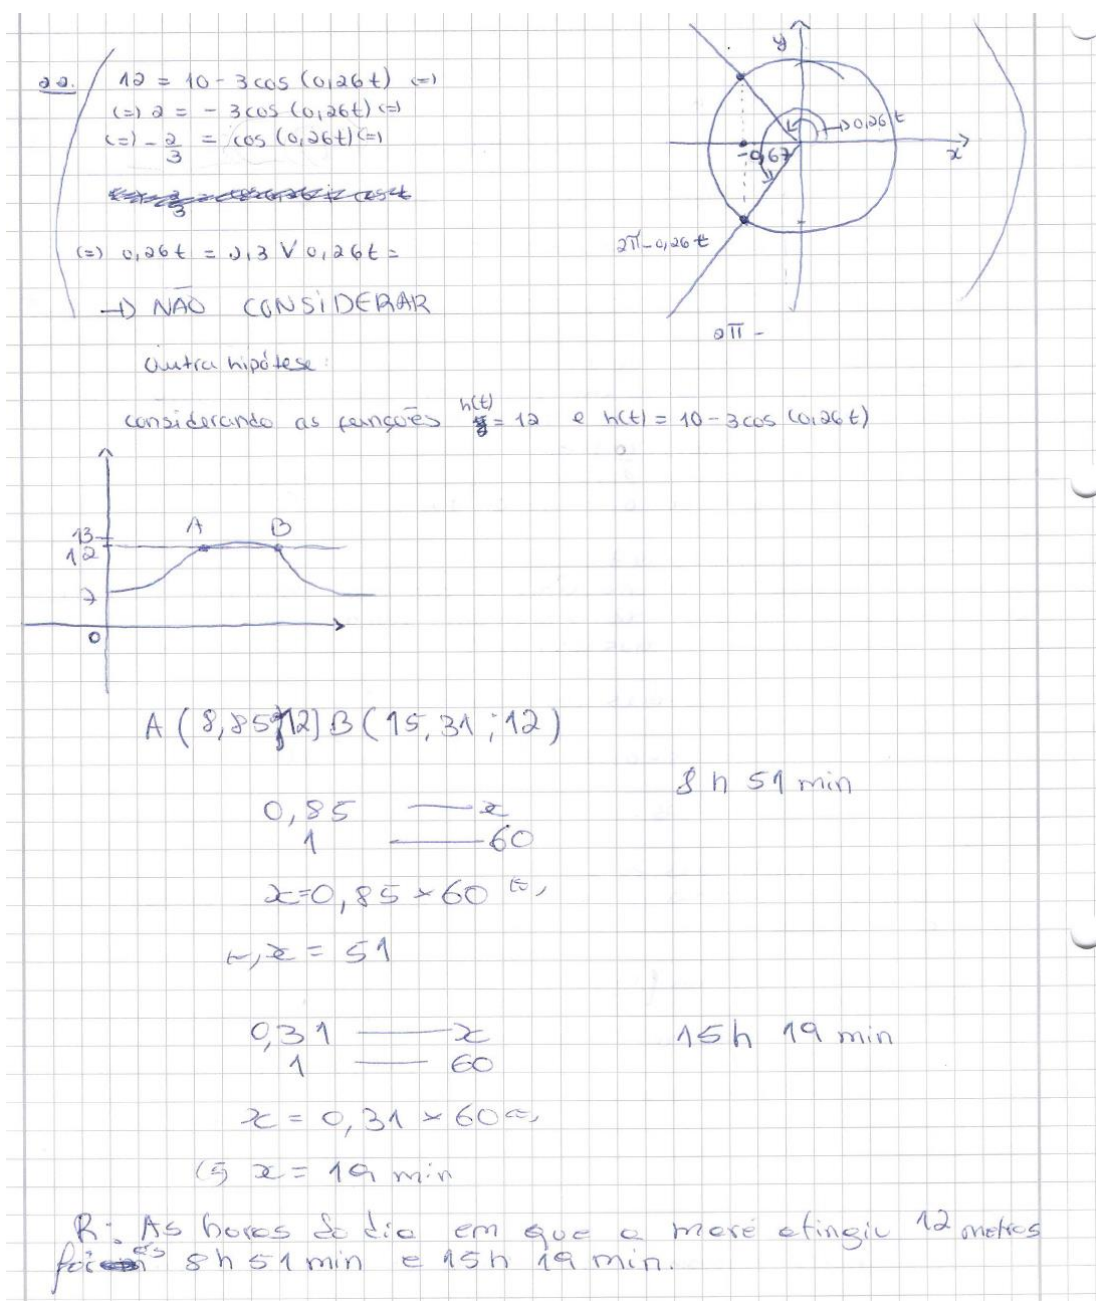 22. 12 = 10 - 3cos (0,26t) (=)
(=) 2 = - 3cos (0,26t) (=)
(=) - 2/3 = cos (0,26t) (=)
(=) 0,26t = 2,3 V 0,26t =
→ NÃO CONSIDERAR
y
0,26t
x
-0,67
2π-0,26t
2π -
Outra hipótese:
considerando as funções h(t) = 12 e h(t) = 10 - 3cos (0,26t)
13
12
A
B
7
0
A (8,85;12) B (15,31 ; 12)
8 h 51 min
0,85 — x
1 — 60
x=0,85 × 60 (=)
(=) x = 51
0,31 — x
1 — 60
15h 19 min
x = 0,31 × 60 (=)
(=) x = 19 min
R: As horas do dia em que a maré atingiu 12 metros
foi às 8h 51 min e 15h 19 min.